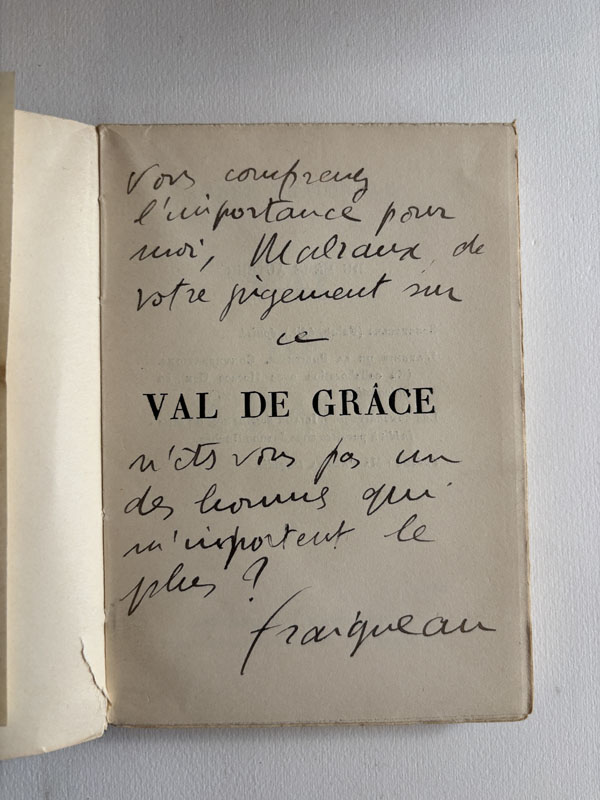 Vous comprenez
l'importance pour
moi, Malraux, de
votre jugement sur
ce
VAL DE GRÂCE
n'êts vous pas un
des hommes qui
m'importent le
plus ?
fraigneau